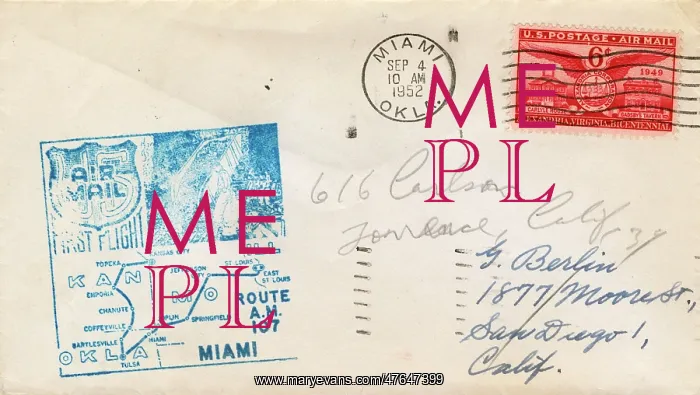 MIAMI
SEP 4
10 AM
1952
OKLA.
U.S. POSTAGE · AIR MAIL
6¢
1949
CARLYLE HOUSE
GADSBY'S TAVERN
ALEXANDRIA, VIRGINIA, BICENTENNIAL
ME
PL
616 Carlson
Torrance, Calif
G Berlin
1877 Moore St.,
San Diego 1,
Calif.
US
AIR
MAIL
FIRST FLIGHT
KANSAS CITY
TOPEKA
JEFFERSON CITY
ST LOUIS
EAST
ST LOUIS
KAN
MO
EMPORIA
CHANUTE
SPRINGFIELD
COFFEYVILLE
BARTLESVILLE
MIAMI
OKLA
TULSA
ROUTE
A.M.
107
MIAMI
ME
PL
www.maryevans.com/47647399